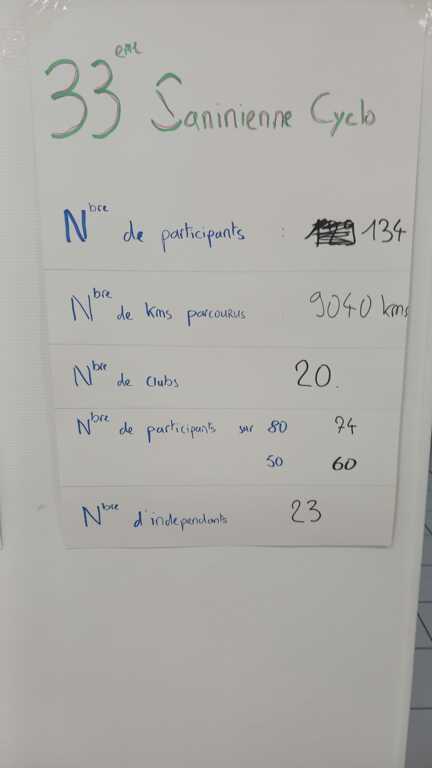 33ème Saninienne Cyclo
Nbre de participants : 134
Nbre de kms parcourus 9040 kms
Nbre de clubs 20.
Nbre de participants sur 80 74
50 60
Nbre d'independants 23